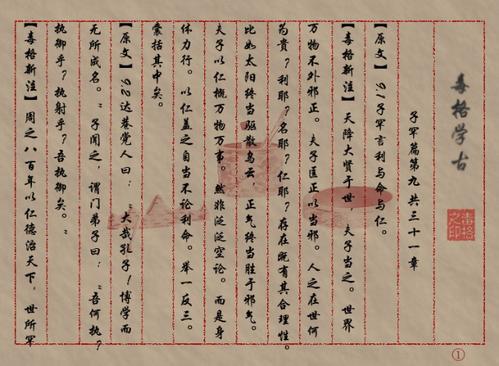 毒格学古
毒格之印
子罕篇第九 共三十一章
【原文】9.1子罕言利与命与仁。
【毒格新注】天降大贤于世，夫子当之。世界
万物不外邪正。夫子匡正以当邪。人之在世何
为贵？利耶？名耶？仁耶？存在既有其合理性。
比如太阳终当驱散乌云，正气终当胜于邪气。
夫子以仁概万物万事。然非泛泛空论。而是身
体力行。以仁盖之自当不论利命。举一反三。
囊括其中矣。
【原文】9.2达巷党人曰：“大哉孔子！博学而
无所成名。”子闻之，谓门弟子曰：“吾何执？
执御乎？执射乎？吾执御矣。”
【毒格新注】周之八百年以仁德治天下，世所罕
①